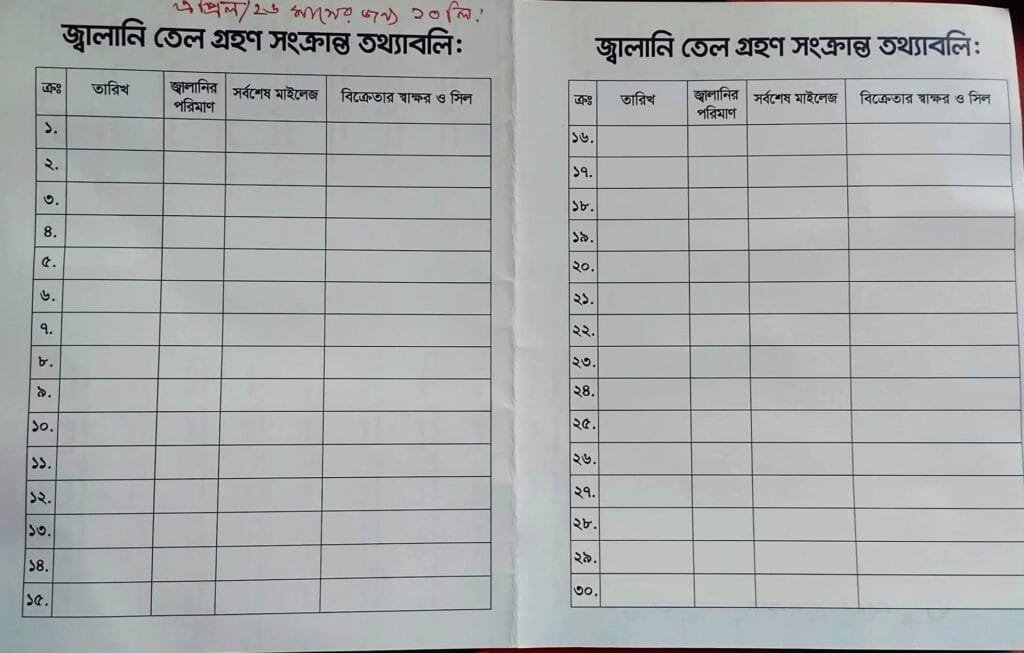 এপ্রিল/২৬ মাসের জন্য ২০ লি.
জ্বালানি তেল গ্রহণ সংক্রান্ত তথ্যাবলি:
ক্রঃ তারিখ জ্বালানির পরিমাণ সর্বশেষ মাইলেজ বিক্রেতার স্বাক্ষর ও সিল
১.
২.
৩.
৪.
৫.
৬.
৭.
৮.
৯.
১০.
১১.
১২.
১৩.
১৪.
১৫.
জ্বালানি তেল গ্রহণ সংক্রান্ত তথ্যাবলি:
ক্রঃ তারিখ জ্বালানির পরিমাণ সর্বশেষ মাইলেজ বিক্রেতার স্বাক্ষর ও সিল
১৬.
১৭.
১৮.
১৯.
২০.
২১.
২২.
২৩.
২৪.
২৫.
২৬.
২৭.
২৮.
২৯.
৩০.